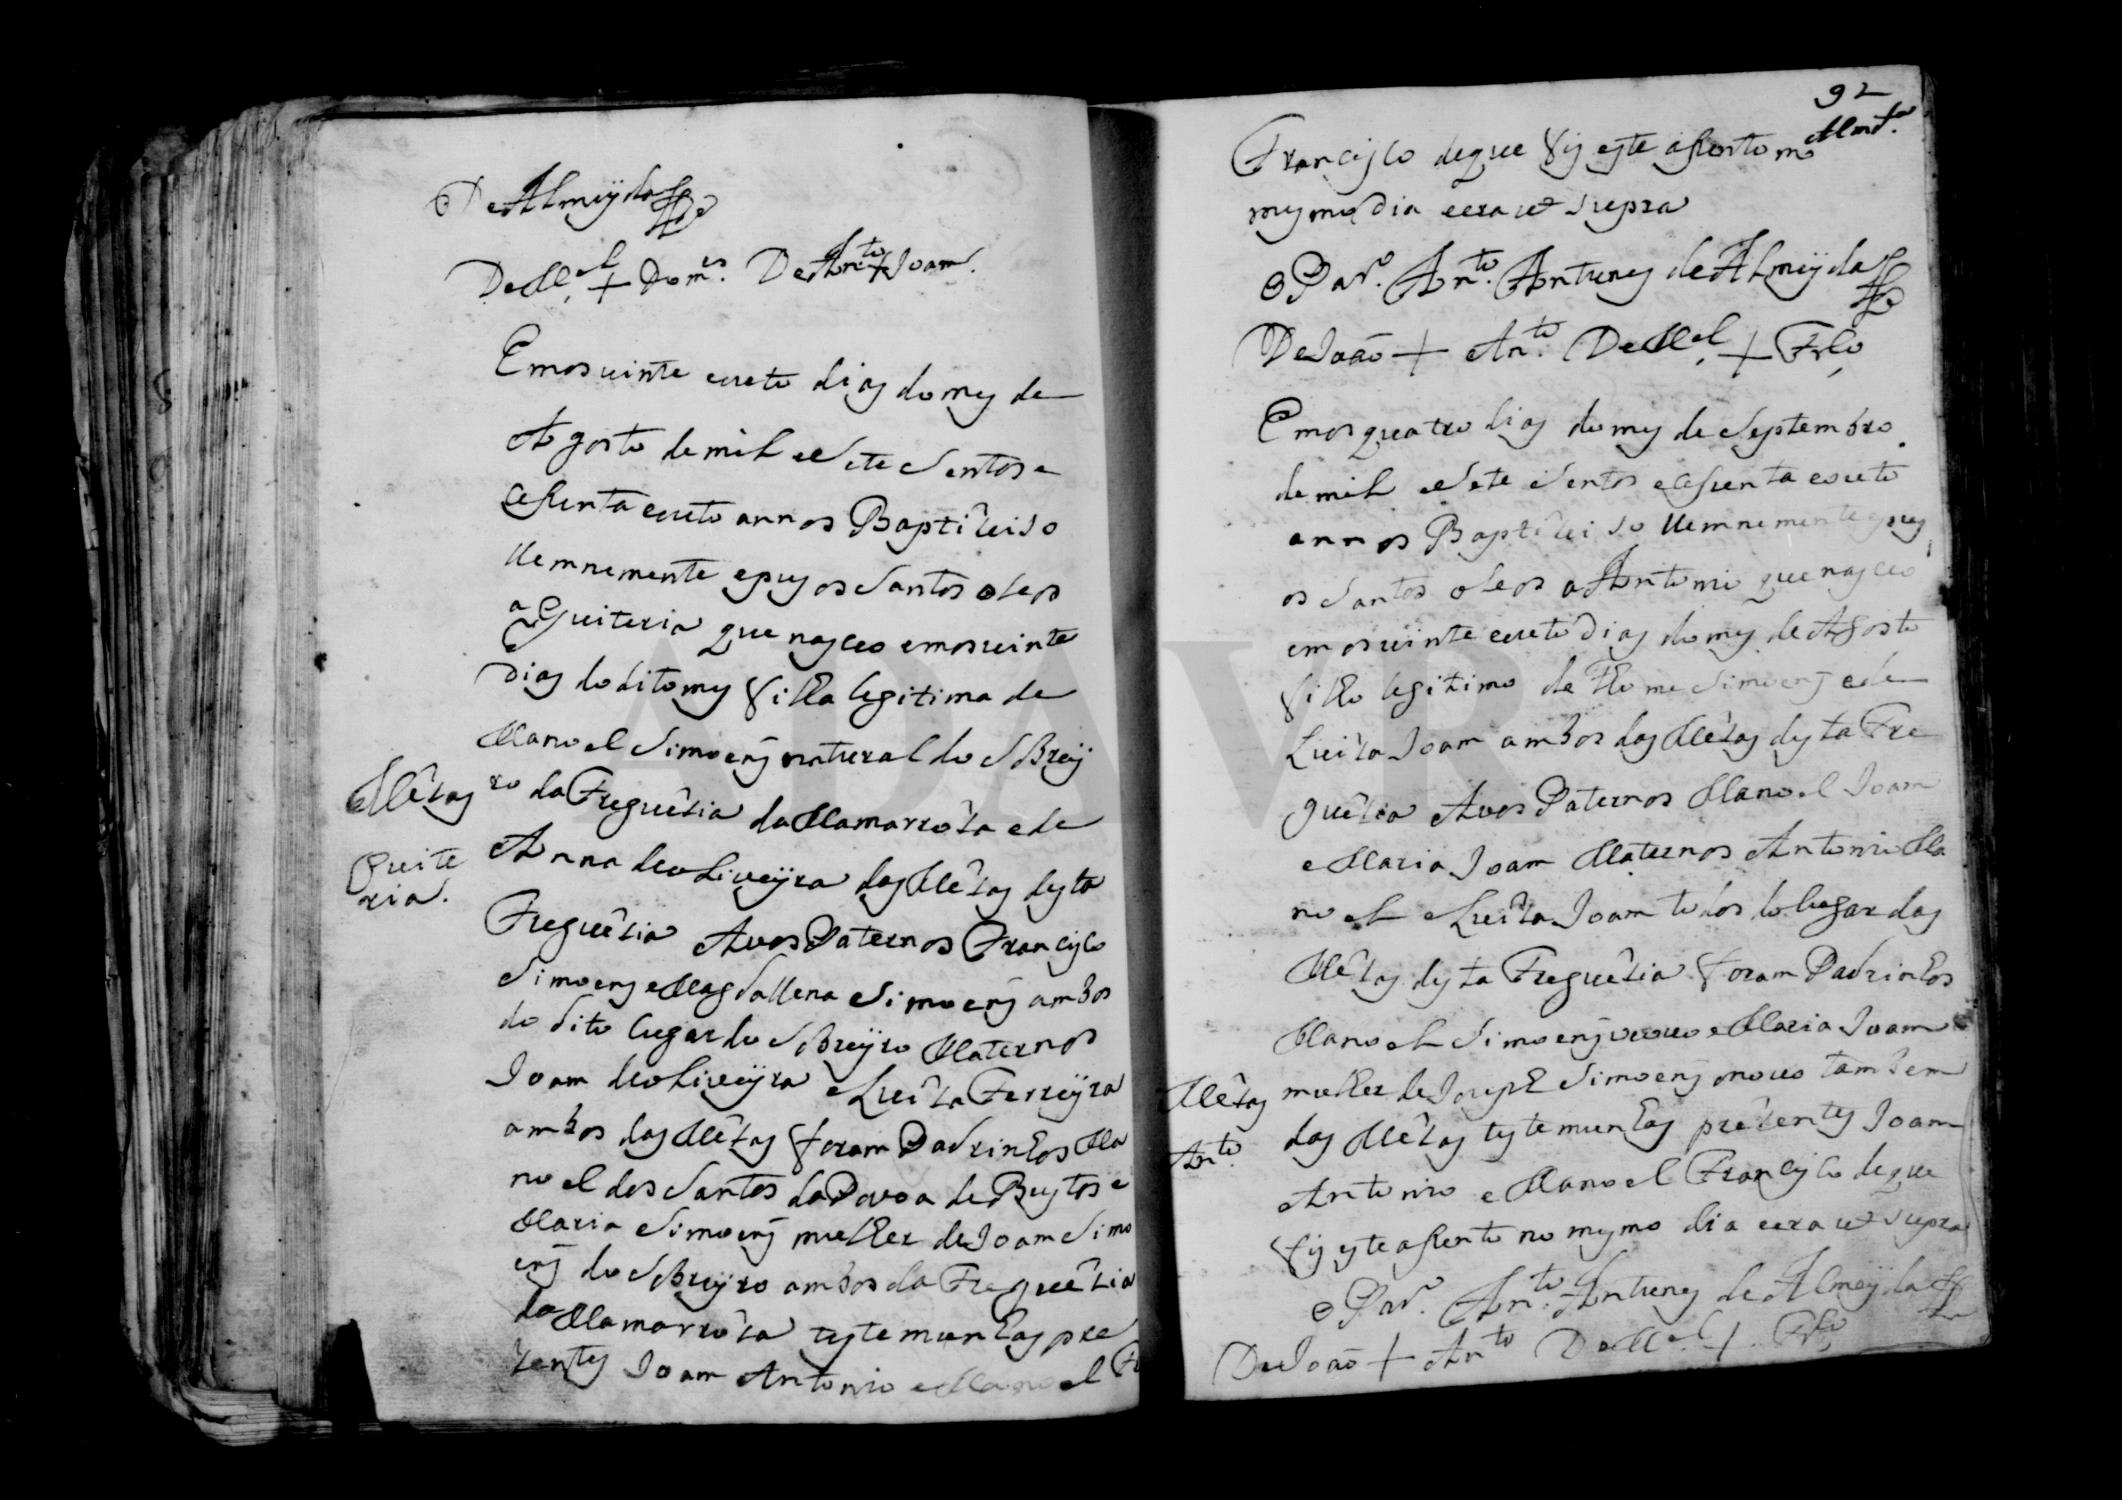 De Almeyda
De M.el + Dom.es De Ant.to + Joam.
Em os vinte e outo dias do mes de
Agosto de mil e sete sentos e
cessenta e outo annos Baptizei so
llemnemente e pus os santos oleos
a Quiteria que nasceo em os vinte
dias do dito mes filha legitima de
Manoel Simoens natural do Sobrey
Mezas
ro da Freguezia da Mamarroza e de
Quite
ria.
Anna de oliveyra das Mezas desta
Freguezia Avos Paternos Francisco
Simoens e Magdallena Simoens ambos
do dito lugar do Sobreyro Maternos
Joam de oliveyra e Luiza Ferreyra
ambos das Mezas foram Padrinhos Ma
noel dos Santos da Povoa de Bustos e
Maria Simoens mulher de Joam Simo
ens do Sobreyro ambos da Freguezia
da Mamarroza testemunhas pre
zentes Joam Antonio e Manoel Fr
92
Francisco de que fis este assento no
mesmo dia e era ut supra
O Par.o Ant.to Antunes de Almeyda
De João + Ant.to De M.el + Fr.co
Em os quatro dias do mes de Septembro
de mil e sete sentos e cessenta e outo
annos Baptizei sollemnemente e pus
os santos oleos a Antonio que nasceo
em os vinte e outo dias do mes de Agosto
filho legitimo de Thome Simoens e de
Luiza Joam ambos das Mezas desta Fre
guezia Avos Paternos Manoel Joam
e Maria Joam Maternos Antonio Ma
noel e Luiza Joam todos do lugar das
Mezas desta Freguezia foram Padrinhos
Manoel Simoens novo e Maria Joam
Mezas
mulher de Joseph Simoens novo tambem
Ant.to
das Mezas testemunhas prezentes Joam
Antonio e Manoel Francisco de que
fis este assento no mesmo dia e era ut supra
O Par.o Ant.to Antunes de Almeyda
De João + Ant.to De M.el + Fr.co
ADAVR